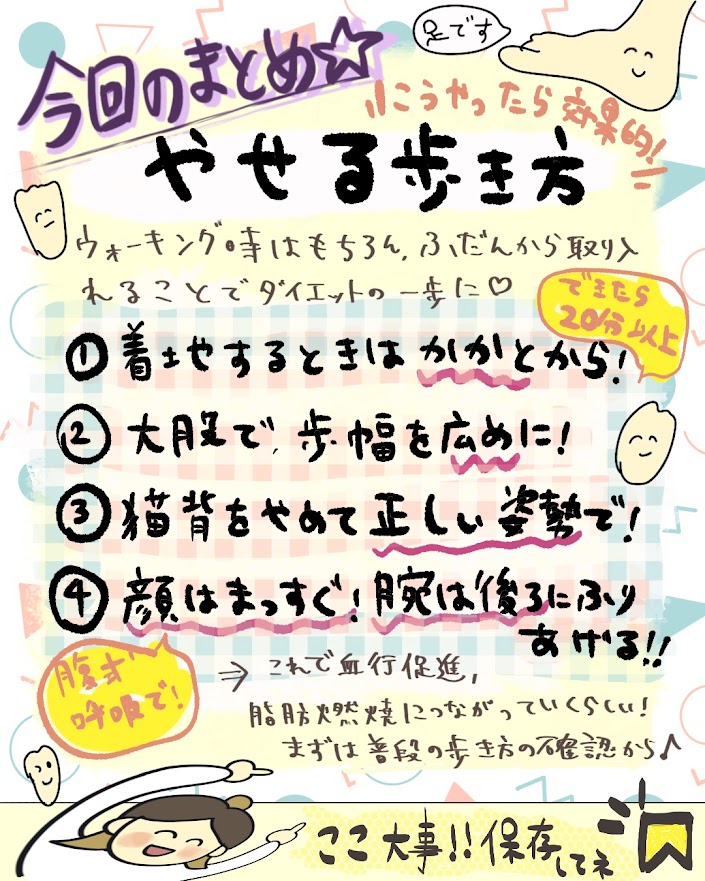 足です
今回のまとめ☆
こうやったら効果的!
やせる歩き方
ウォーキング時はもちろん、ふだんから取り入
れることでダイエットの一歩に♡
できたら
20分以上
① 着地するときはかかとから!
② 大股で、歩幅を広めに!
③ 猫背をやめて正しい姿勢で!
④ 顔はまっすぐ!腕は後ろにふり
あげる!!
腹式
呼吸で!
⇒ これで血行促進、
脂肪燃焼につながっていくらしい!
まずは普段の歩き方の確認から♪
ここ大事!!保存してネ